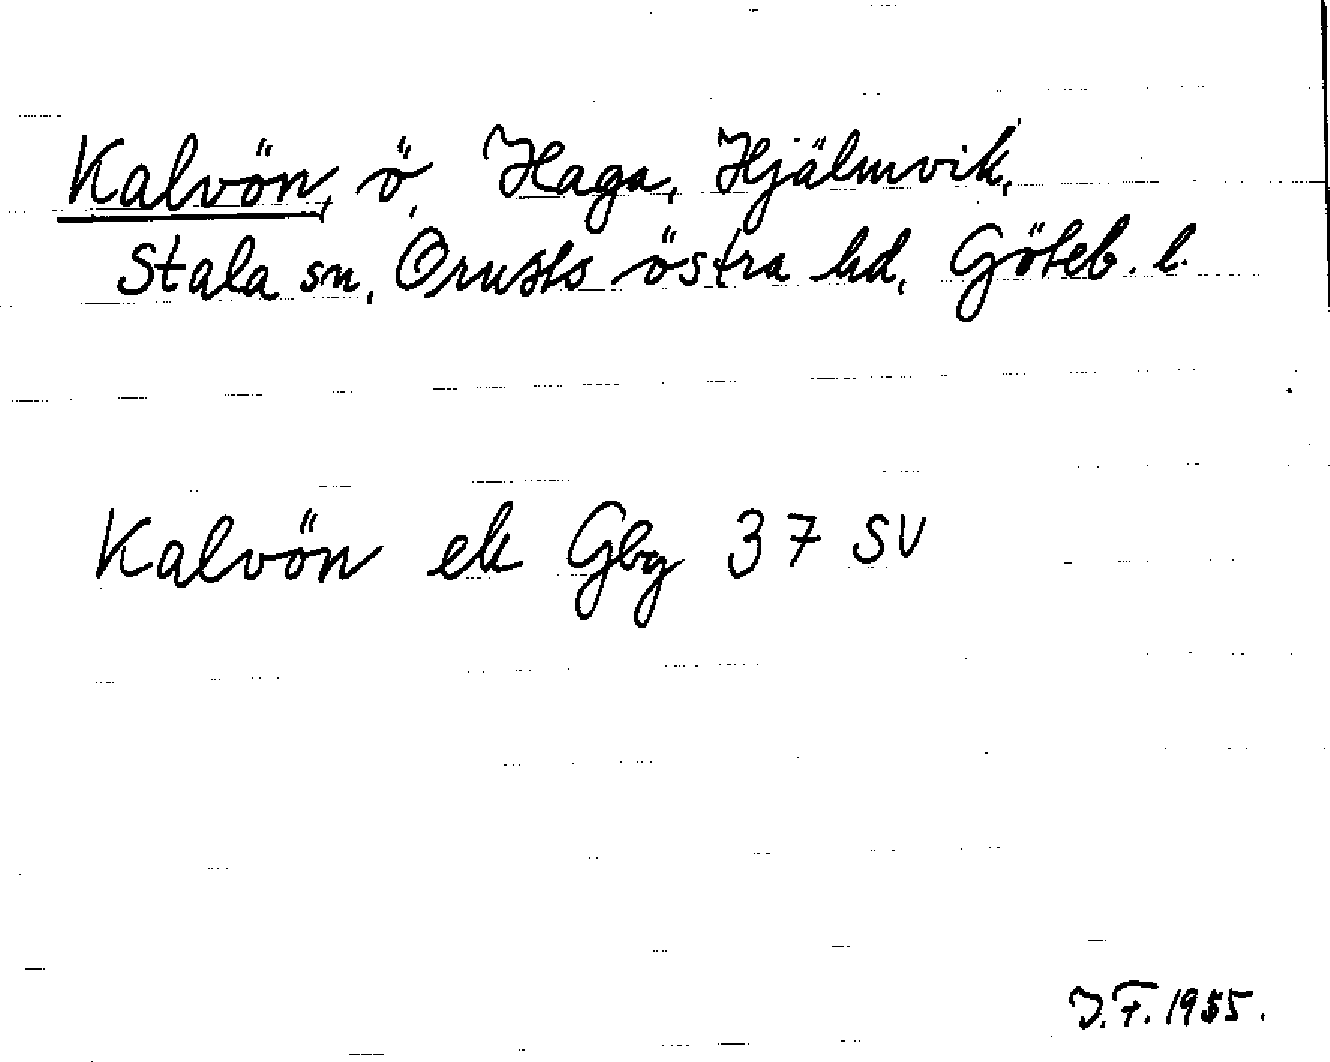 Kalvön, ö, Haga, Hjälmvik,
Stala sn, Orusts östra hd, Göteb. l.
Kalvön ek Gbg 37 SV
J.F. 1955.